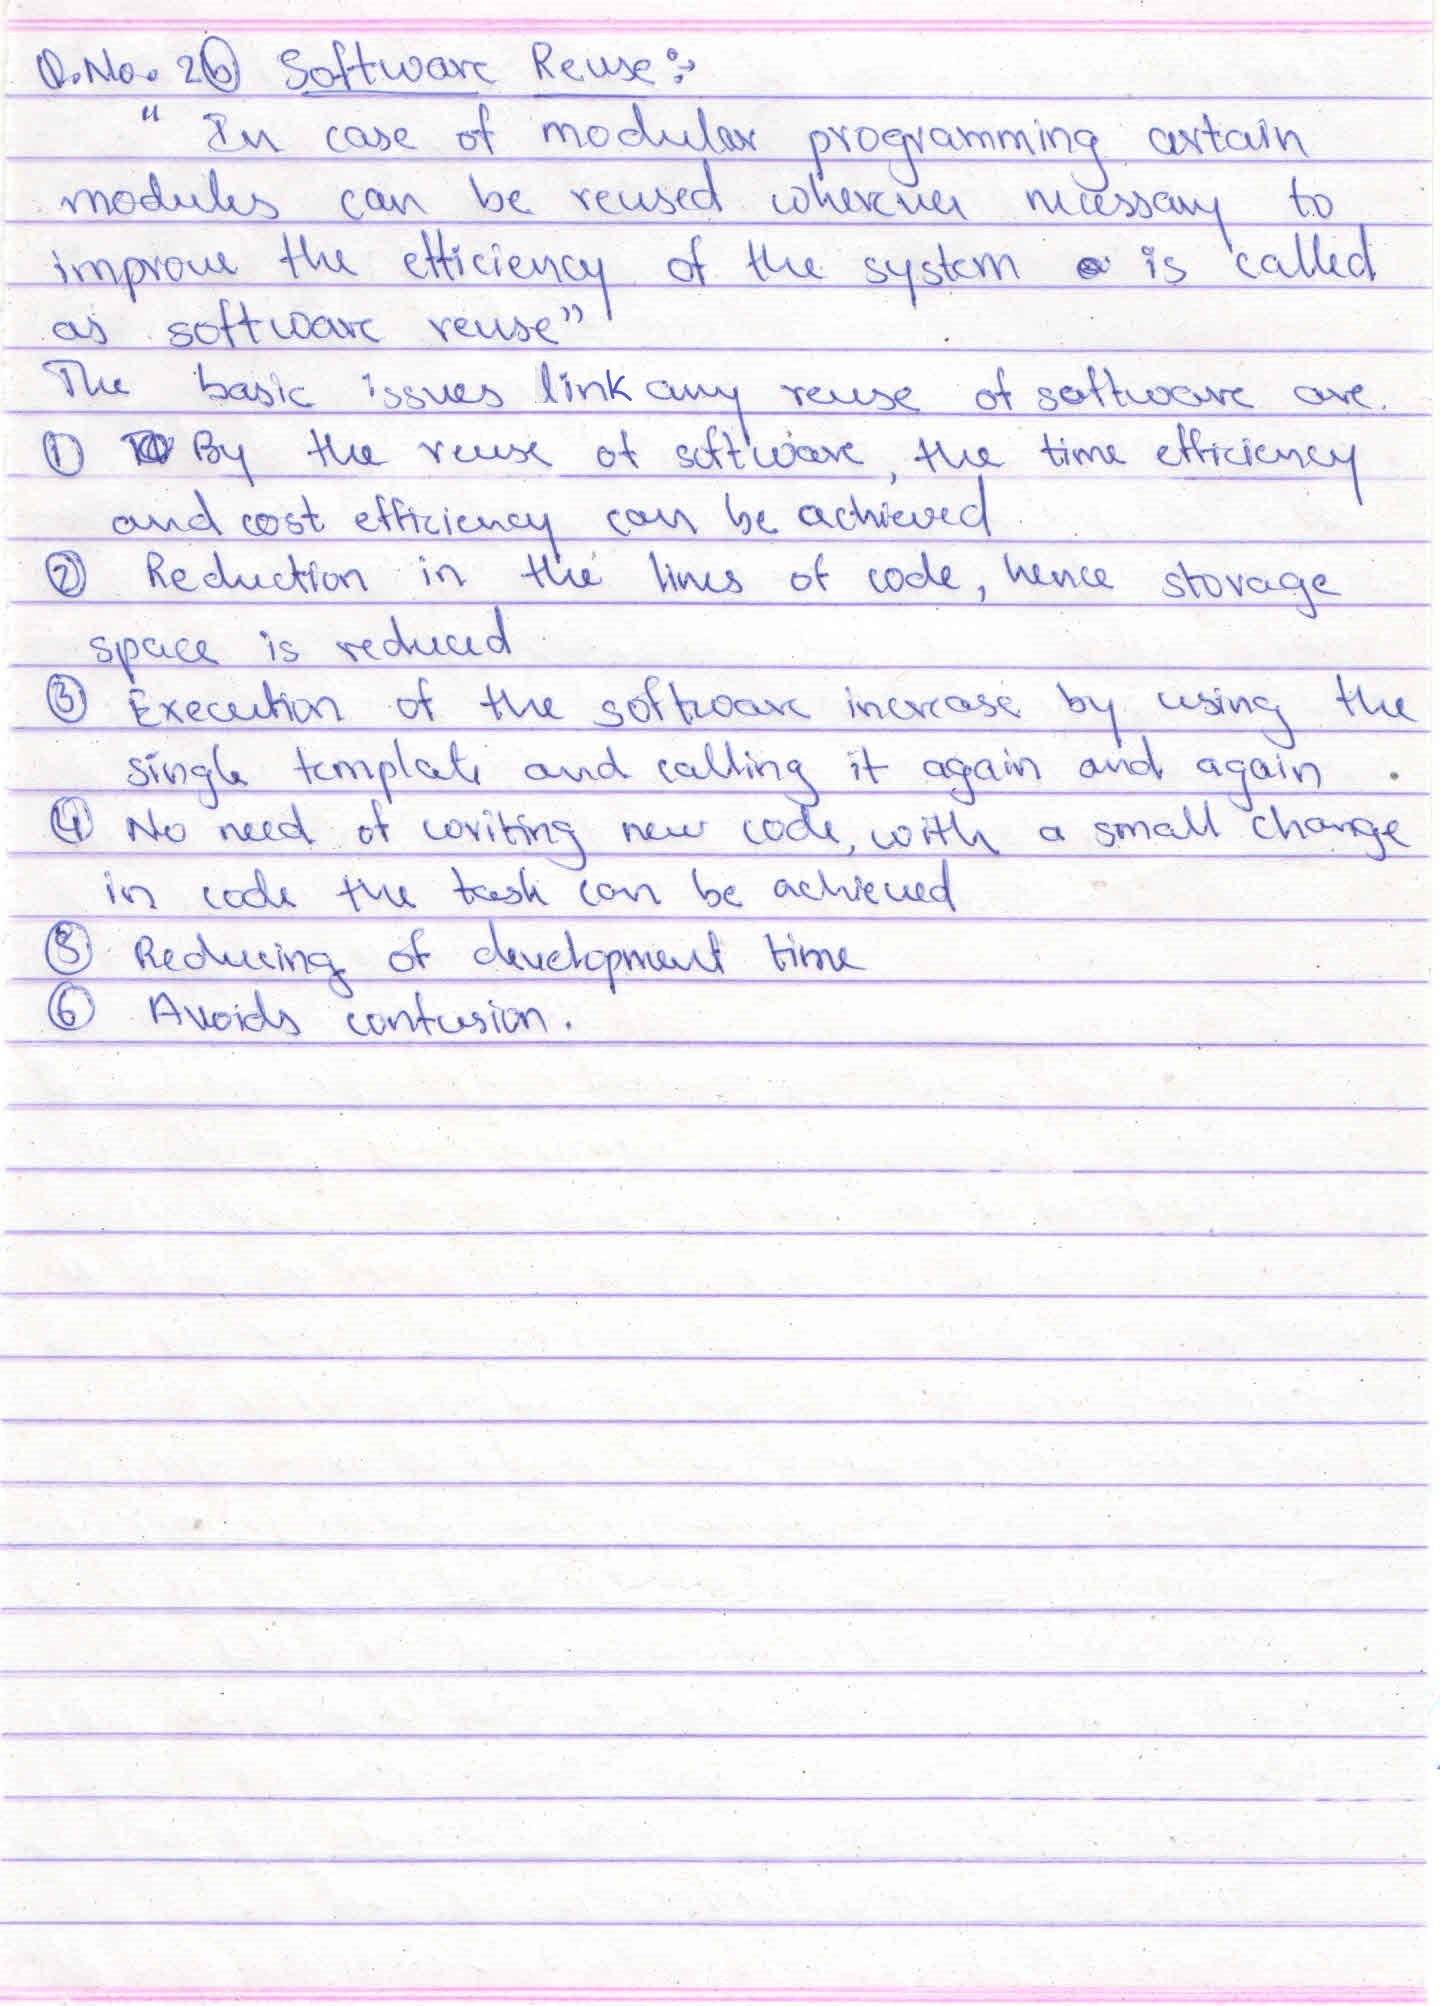 Q.No. 2(b) Software Reuse:→
" In case of modular programming certain
modules can be reused wherever necessary to
improve the efficiency of the system is called
as software reuse"
The basic issues link any reuse of software are.
① By the reuse of software, the time efficiency
and cost efficiency can be achieved
② Reduction in the lines of code, hence storage
space is reduced
③ Execution of the software increase by using the
single template and calling it again and again .
④ No need of writing new code, with a small change
in code the task can be achieved
⑤ Reducing of development time
⑥ Avoids confusion.